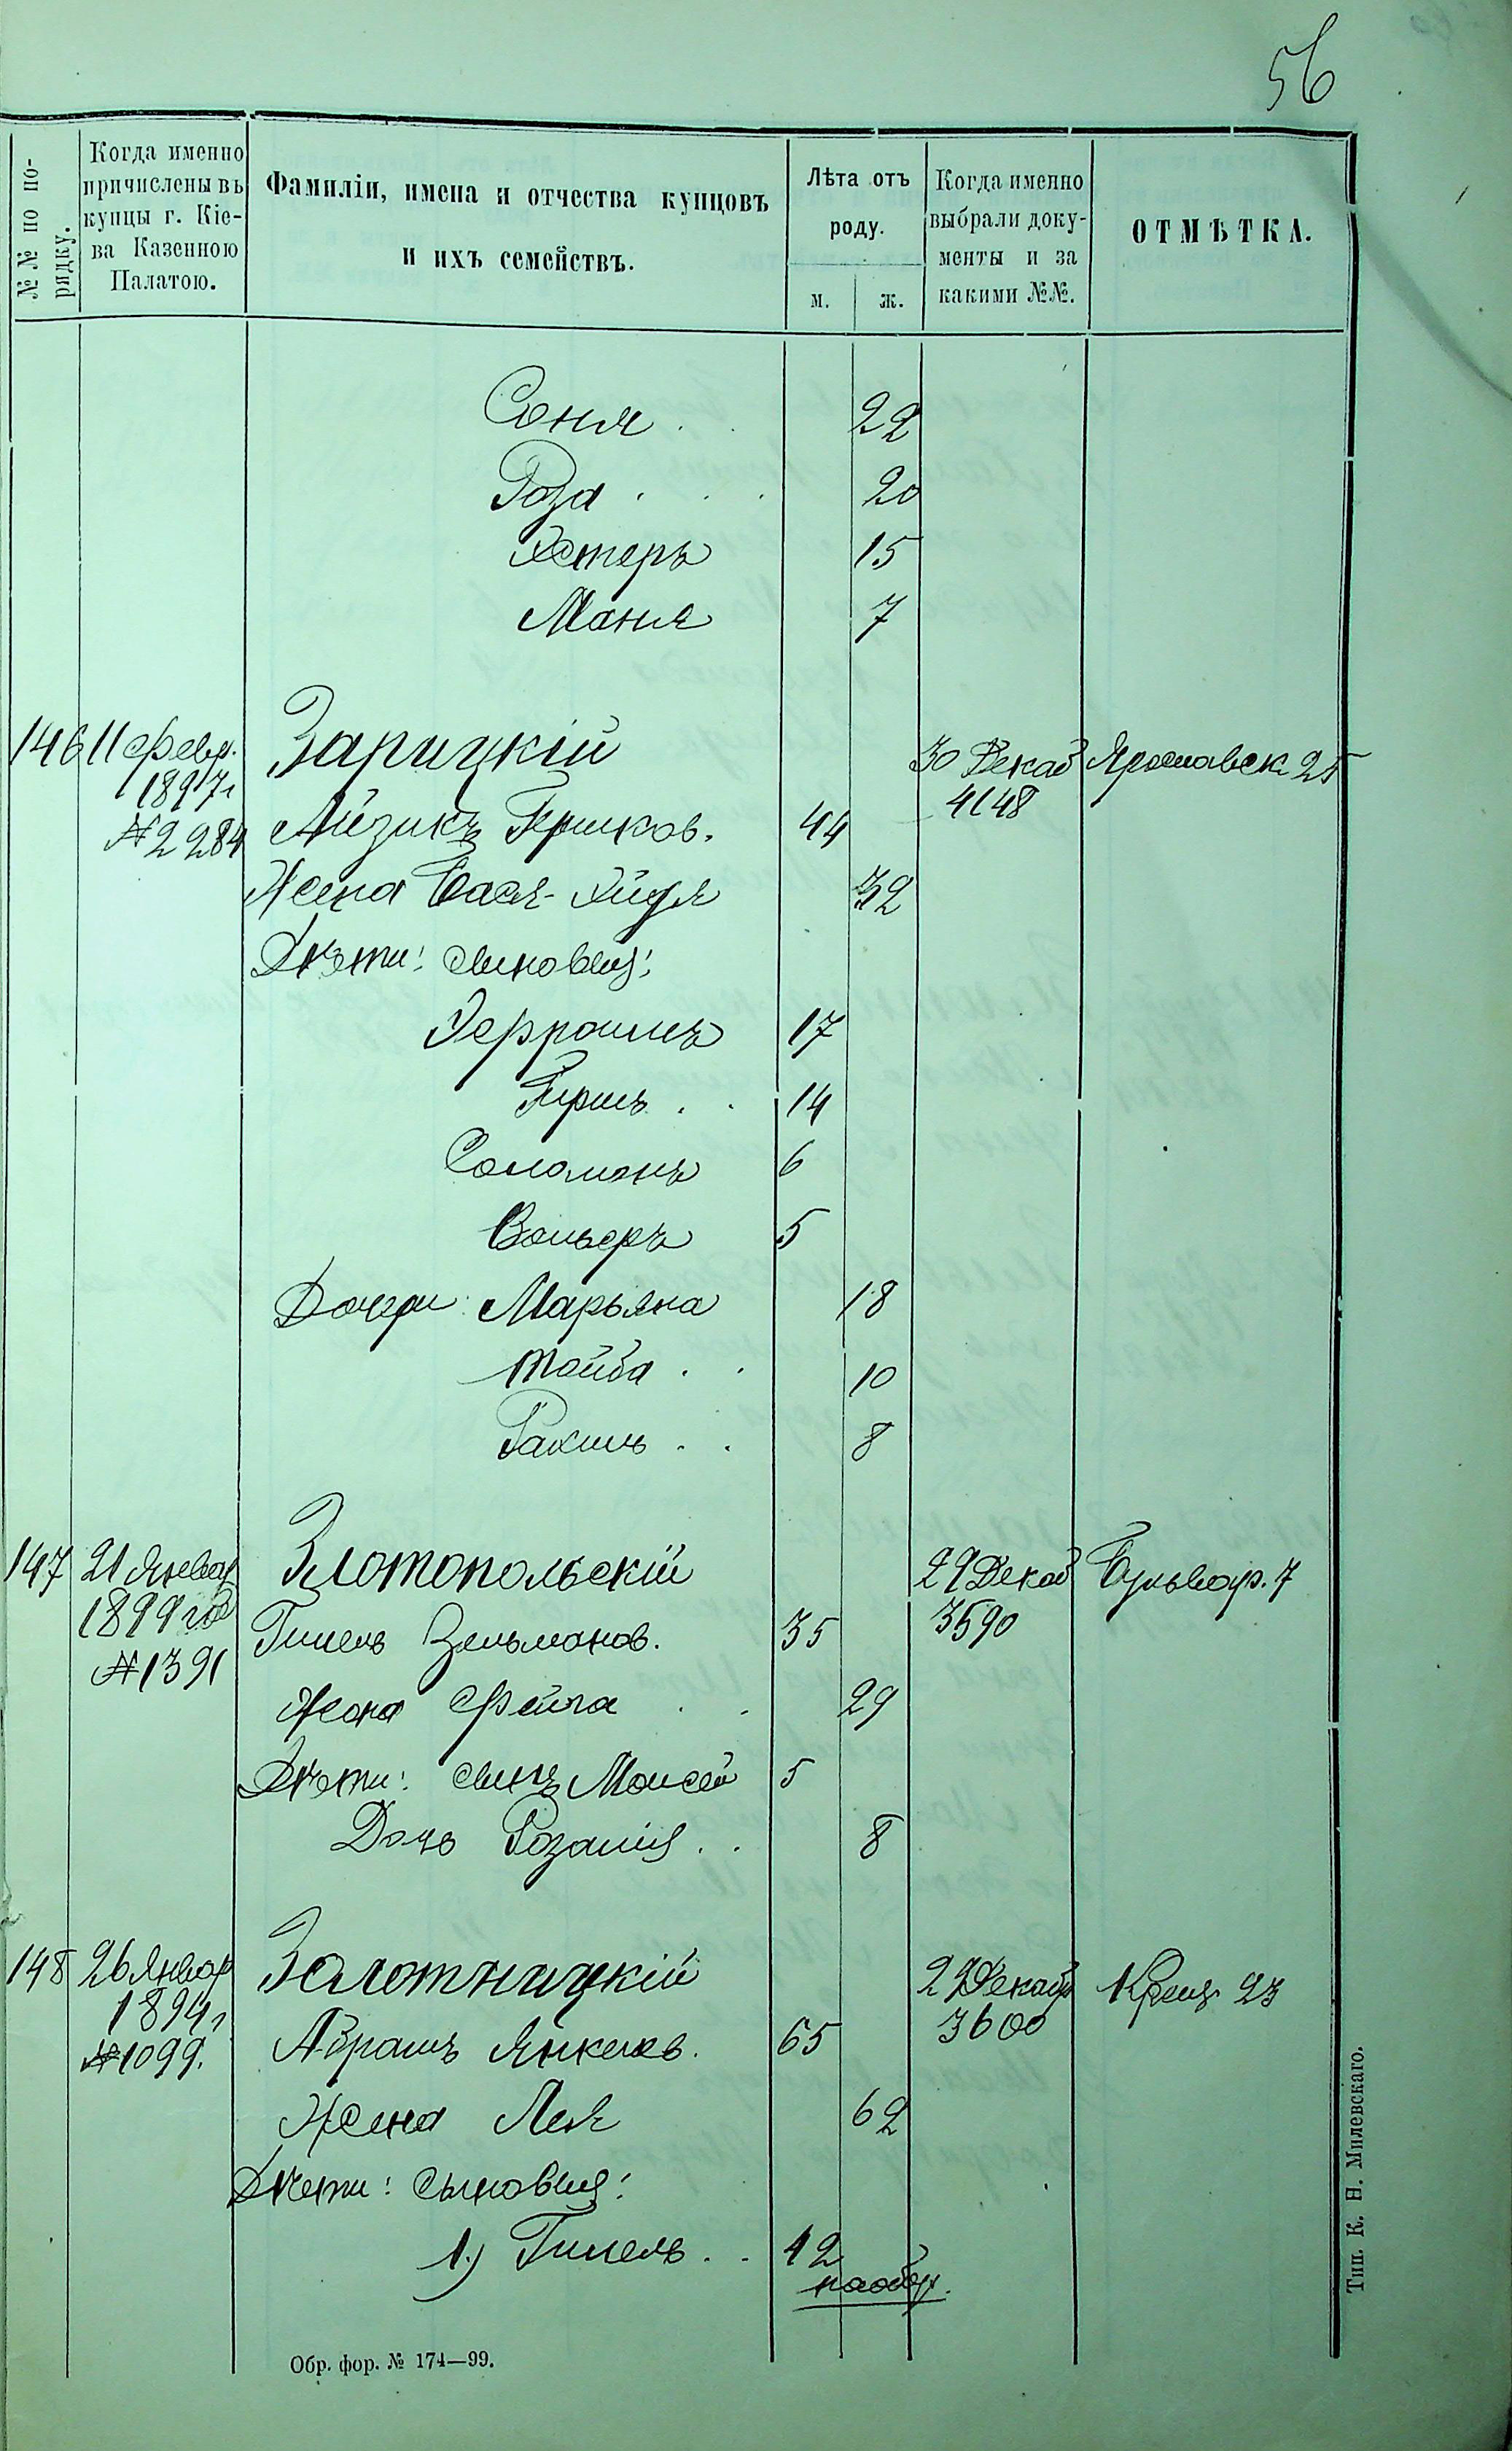 56
№№ по по-
рядку.
Когда именно
причислены въ
купцы г. Кіе-
ва Казенною
Палатою.
Фамиліи, имена и отчества купцовъ
и ихъ семействъ.
Лѣта отъ
роду.
м. ж.
Когда именно
выбрали доку-
менты и за
какими №№.
ОТМѢТКА.
Соня . . 22
Роза . . . 20
Эстеръ 15
Маня 7
146 11 Февр. Зарицкій 30 Декаб Ярославск 25
1897 г 4148
№ 2284 Айзикъ Гершков. 44
Жена Бася-Эйдля 32
Дѣти: сыновья:
17
Гершъ . . 14
Соломонъ 6
Вольфъ 5
Дочери: Марьяна 18
Тойба . . 10
Рахиль . . 8
147 21 Январ Златопольскій 29 Декаб Бульвар. 7
1899 год 3590
№ 1391 Гилель Зельманов. 35
Жена Фейга . . 29
Дѣти: сынъ Моисей 5
Дочь Розалія . . 8
148 26 Январ Золотницкій 29 Декаб Крещ. 23
1894 г 3600
№ 1099. Абрамъ Янкелев. 65
Жена Лея 62
Дѣти: сыновья:
1.) Гилель . . 42
наобор.
Обр. фор. № 174—99.
Тип. К. Н. Милевскаго.